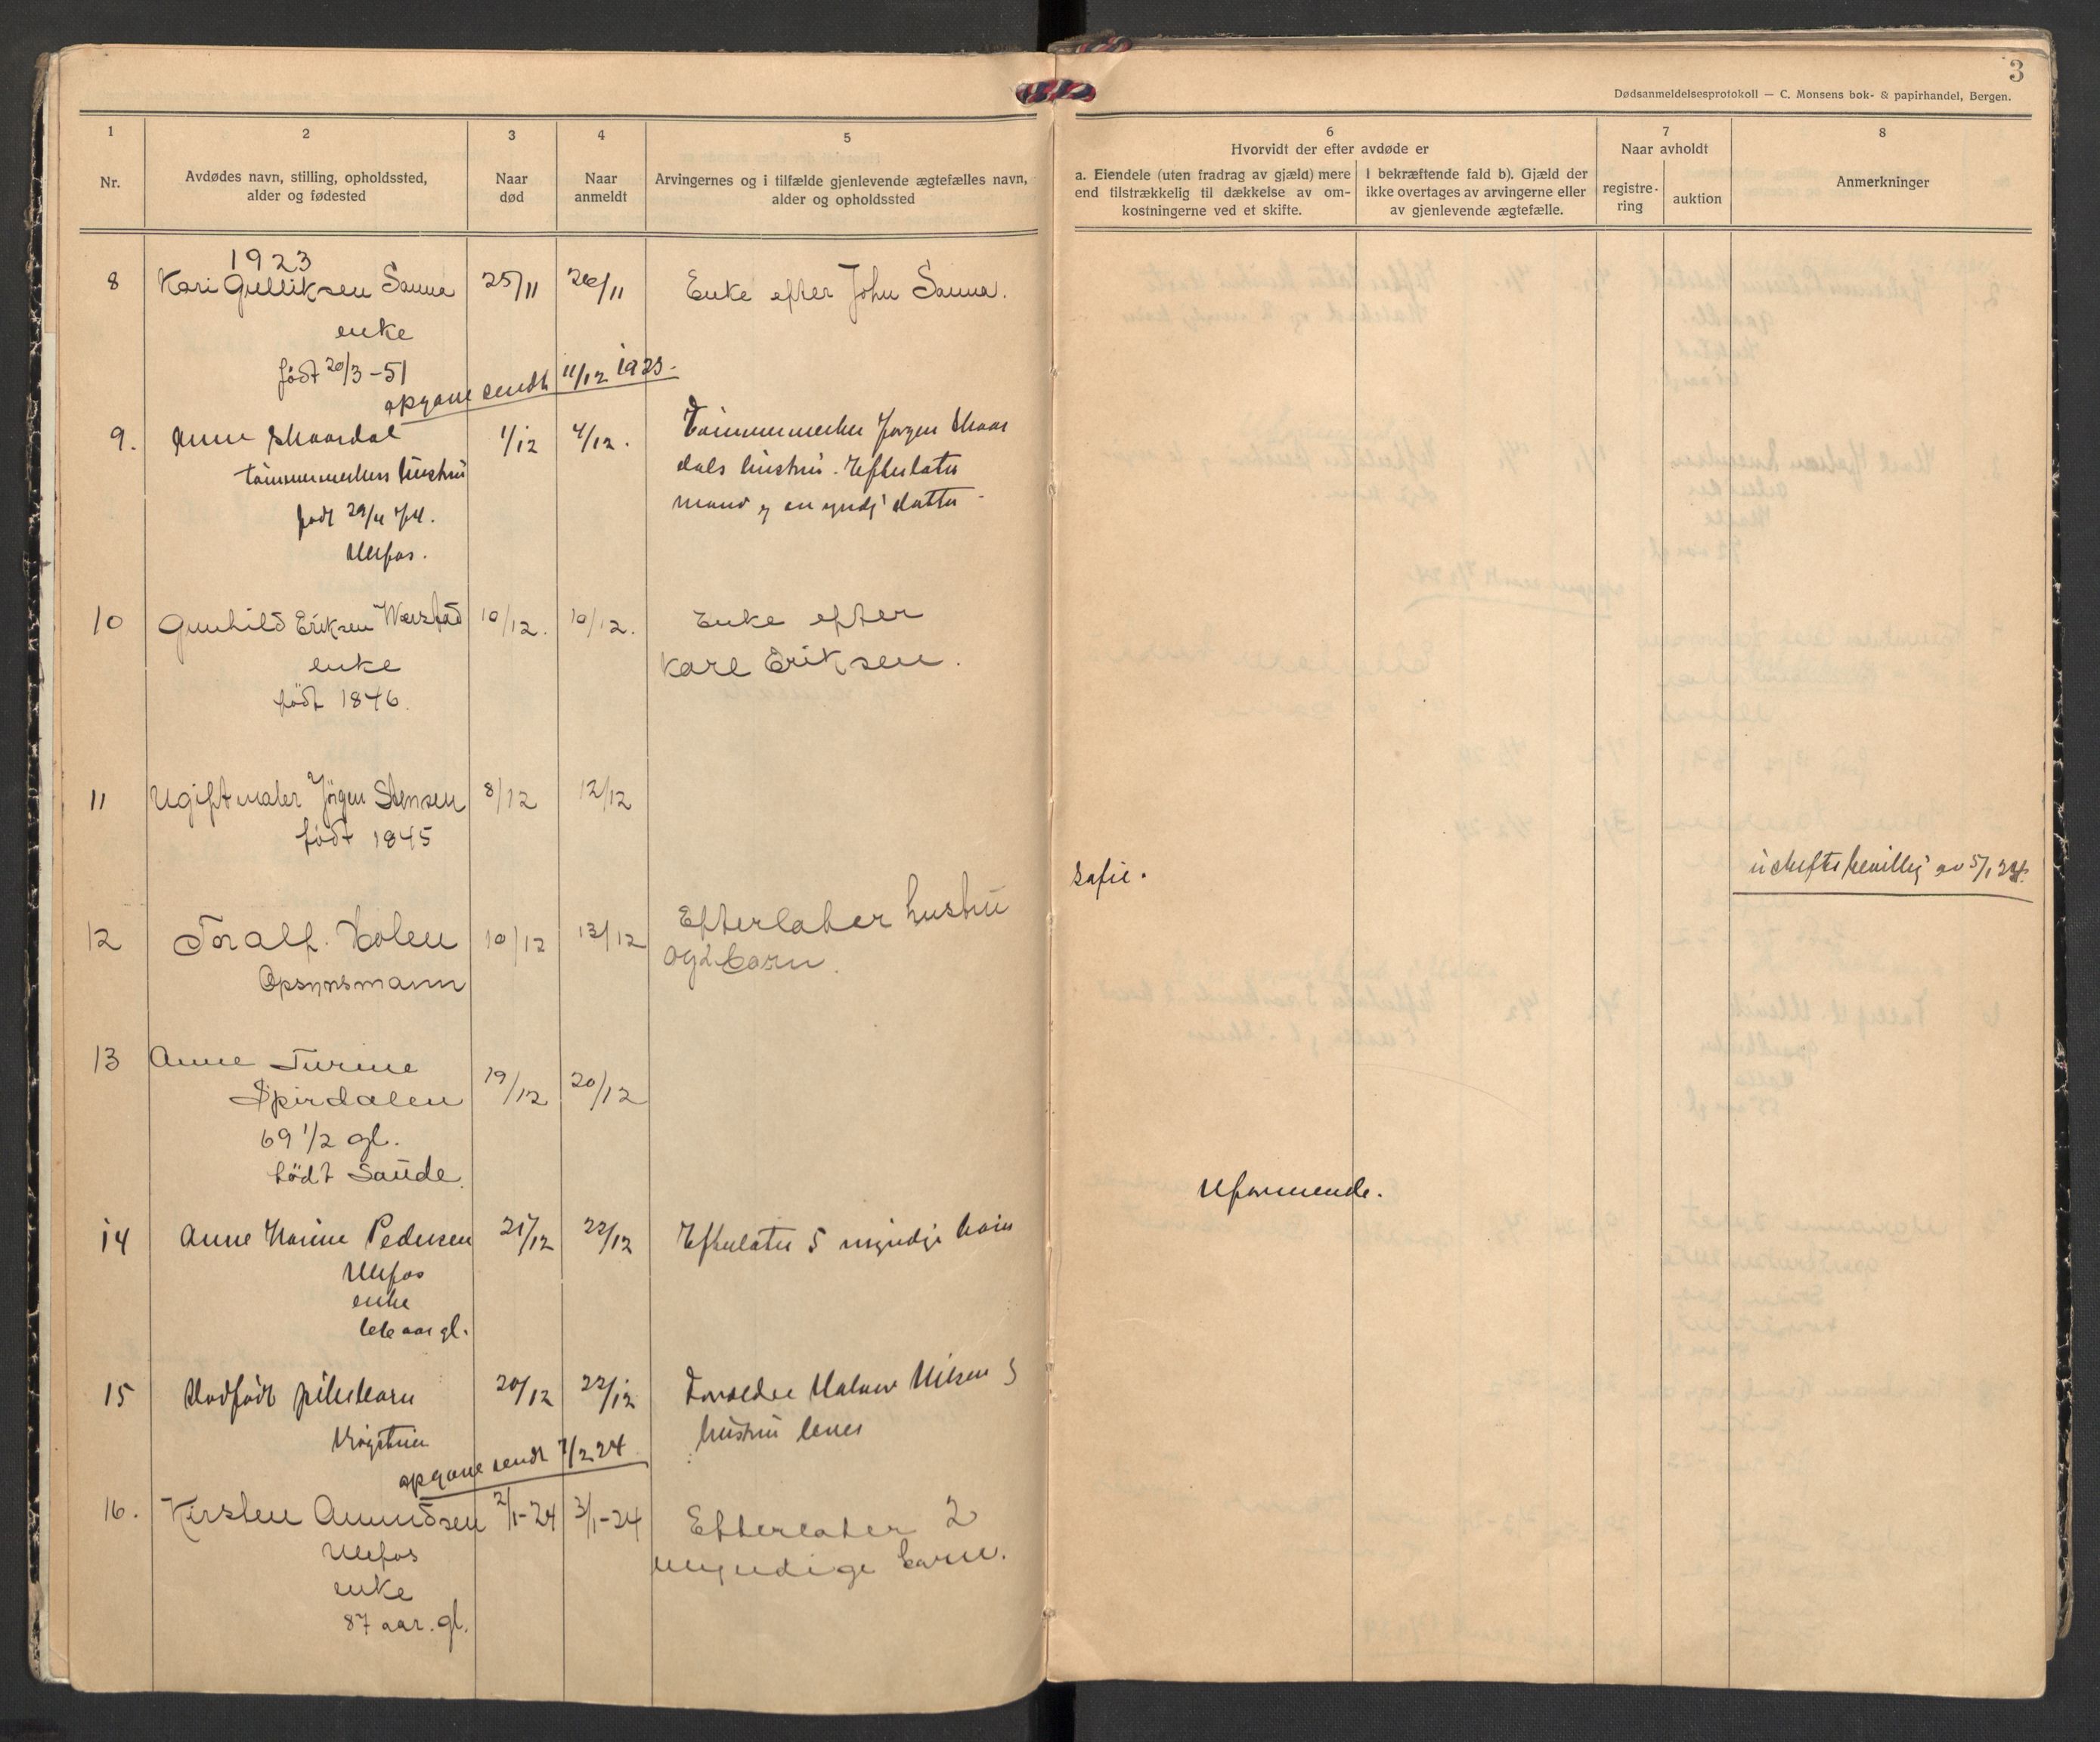 3
Dødsanmeldelsesprotokoll — C. Monsens bok- & papirhandel, Bergen.
1
2
3
4
5
6
7
8
Nr.
Avdødes navn, stilling, opholdssted,
alder og fødested
Naar
død
Naar
anmeldt
Arvingernes og i tilfælde gjenlevende ægtefælles navn,
alder og opholdssted
Hvorvidt der efter avdøde er
a. Eiendele (uten fradrag av gjæld) mere
end tilstrækkelig til dækkelse av om-
kostningerne ved et skifte.
I bekræftende fald b). Gjæld der
ikke overtages av arvingerne eller
av gjenlevende ægtefælle.
Naar avholdt
registre-
ring
auktion
Anmerkninger
1923
8 Kari Gulliksen Sanna 25/11 26/11 Enke efter John Sanna.
enke
født 20/3-51
opgave sendt 11/12 1923.
9. Anne Skaardal 1/12 4/12. Tømmermerker Jørgen Skaar
tømmermerkers hustru dals hustru. Efterlater
født 29/4 mand og en datter
Ulefos.
10 Gunhild Eriksen Værstad 10/12. 10/12. Enke efter
enke Karl Eriksen.
født 1846.
11 Ugift maler Jørgen Stensen 8/12 12/12
født 1845
Safir. uskiftebevillg av 5/1 24.
12 Toralf Holen 10/12 13/12 Efterlater hustru
Opsynsmann og 2 barn.
13 Anne Turine
Spirdalen 19/12 20/12
69 1/2 gl.
født Saude.
Uformuende.
14 Anne Karine Pedersen 21/12 22/12 Efterlater 5 myndige barn
Ulefos
enke
66 aar gl.
15 Dødfødt pikebarn 20/12 22/12 Forældre Halvor Nilsen &
hustru lever
opgave sendt 7/2 24
16. Kirsten Amundsen 2/1-24 3/1-24 Efterlater 2
Ulefos myndige barn.
enke
87 aar. gl.